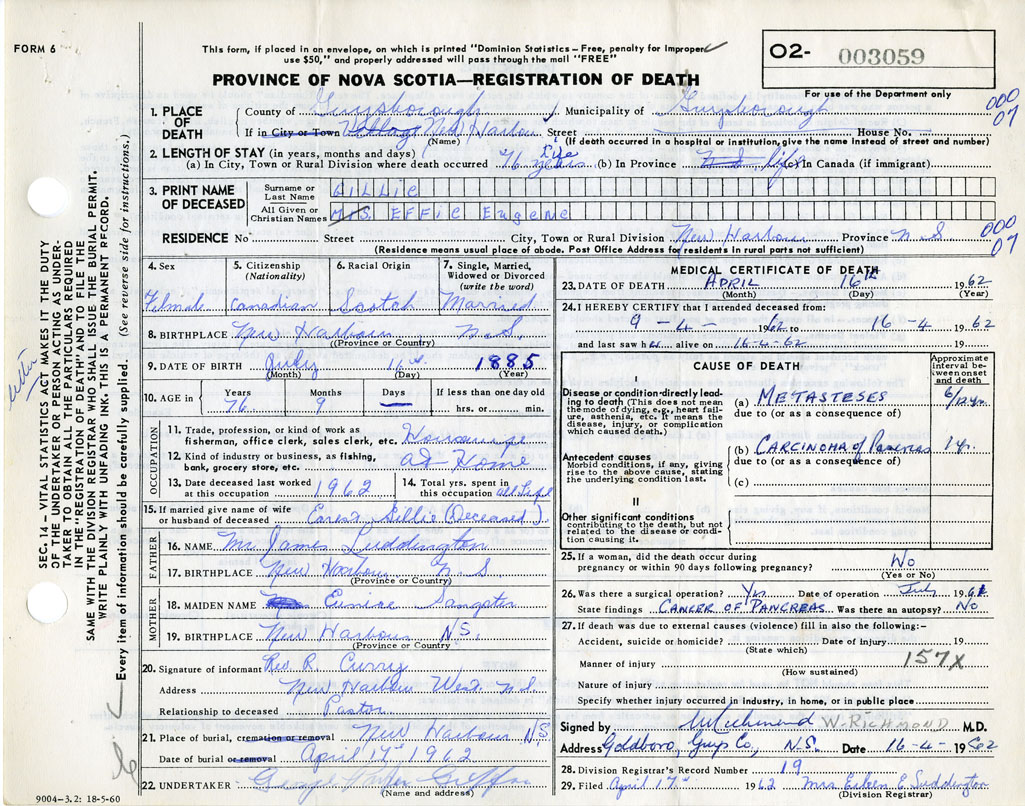 FORM 6
This form, if placed in an envelope, on which is printed "Dominion Statistics – Free, penalty for improper
use $50," and properly addressed will pass through the mail "FREE"
O2- 003059
For use of the Department only
PROVINCE OF NOVA SCOTIA—REGISTRATION OF DEATH
000
07
1. PLACE OF DEATH
County of Guysborough Municipality of Guysborough
If in City or Town Village New Harbour Street House No.
(Name) (If death occurred in a hospital or institution, give the name instead of street and number)
2. LENGTH OF STAY (in years, months and days)
(a) In City, Town or Rural Division where death occurred 76 years Life (b) In Province N S Life (c) In Canada (if immigrant)
3. PRINT NAME OF DECEASED
Surname or Last Name GILLIE
All Given or Christian Names Mrs. EFFIE EugeNe
RESIDENCE No Street City, Town or Rural Division New Harbour Province N S
000
07
(Residence means usual place of abode. Post Office Address for residents in rural parts not sufficient)
4. Sex
Female
5. Citizenship
(Nationality)
Canadian
6. Racial Origin
Scotch
7. Single, Married,
Widowed or Divorced
(write the word)
Married
8. BIRTHPLACE New Harbour N.S.
(Province or Country)
9. DATE OF BIRTH July 16 1885
(Month) (Day) (Year)
10. AGE in
Years 76
Months 9
Days —
If less than one day old
hrs. or min.
OCCUPATION
11. Trade, profession, or kind of work as
fisherman, office clerk, sales clerk, etc. Housewife
12. Kind of industry or business, as fishing,
bank, grocery store, etc. at Home
13. Date deceased last worked
at this occupation 1962
14. Total yrs. spent in
this occupation all
15. If married give name of wife
or husband of deceased Ernest Gillie (Deceased).
FATHER
16. NAME Mr James Luddington
17. BIRTHPLACE New Harbour N.S.
(Province or Country)
MOTHER
18. MAIDEN NAME Eunice Sangster
19. BIRTHPLACE New Harbour N.S.
(Province or Country)
20. Signature of informant Rev R. Curry
Address New Harbour West N.S.
Relationship to deceased Pastor
21. Place of burial, cremation or removal New Harbour N.S.
Date of burial or removal April 17 1962
22. UNDERTAKER George
(Name and address)
9004-3.2: 18-5-60
MEDICAL CERTIFICATE OF DEATH
23. DATE OF DEATH APRIL 16th 1962
(Month) (Day) (Year)
24. I HEREBY CERTIFY that I attended deceased from:
9 - 4 - 1962 to 16 - 4 1962
and last saw her alive on 16-4-62 19
CAUSE OF DEATH
Approximate
interval be-
tween onset
and death
I
Disease or condition directly lead-
ing to death (This does not mean
the mode of dying, e.g., heart fail-
ure, asthenia, etc. It means the
disease, injury, or complication
which caused death.)
(a) METASTESES 6/12 yr.
due to (or as a consequence of)
Antecedent causes
Morbid conditions, if any, giving
rise to the above cause, stating
the underlying condition last.
(b) CARCINOMA of Pancreas 1 yr.
due to (or as a consequence of)
(c)
II
Other significant conditions
contributing to the death, but not
related to the disease or condi-
tion causing it.
25. If a woman, did the death occur during
pregnancy or within 90 days following pregnancy? No
(Yes or No)
26. Was there a surgical operation? Yes Date of operation July 1961
State findings CANCER OF PANCREAS Was there an autopsy? No
27. If death was due to external causes (violence) fill in also the following:–
Accident, suicide or homicide? Date of injury 19
(State which)
Manner of injury 157X
(How sustained)
Nature of injury
Specify whether injury occurred in industry, in home, or in public place
Signed by W Richmond W. RICHMOND M.D.
Address Goldboro, Guys Co, N.S. Date 16-4- 1962
28. Division Registrar's Record Number 19
29. Filed April 17 1962 Mrs Eileen E Luddington
(Division Registrar)
SEC. 14 – VITAL STATISTICS ACT MAKES IT THE DUTY
OF THE UNDERTAKER OR PERSON ACTING AS UNDER-
TAKER TO OBTAIN ALL THE PARTICULARS REQUIRED
IN THE "REGISTRATION OF DEATH" AND TO FILE THE
SAME WITH THE DIVISION REGISTRAR WHO SHALL ISSUE THE BURIAL PERMIT.
WRITE PLAINLY WITH UNFADING INK. THIS IS A PERMANENT RECORD.
Every item of information should be carefully supplied. (See reverse side for instructions.)